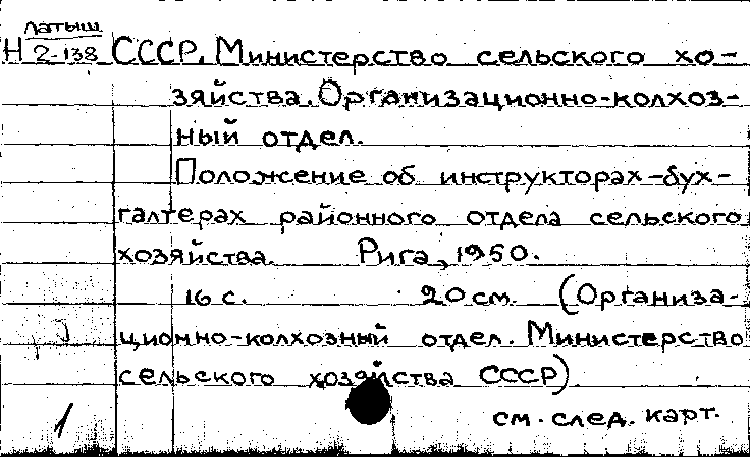 латыш
Н 2-138 СССР. Министерство сельского хо-
зяйства. Организационно-колхоз-
ный отдел.
Положение об инструкторах-бух-
галтерах районного отдела сельского
хозяйства. Рига, 1950.
16 с. 20 см. (Организа-
ционно-колхозный отдел. Министерство
сельского хозяйства СССР)
1 см. след. карт.